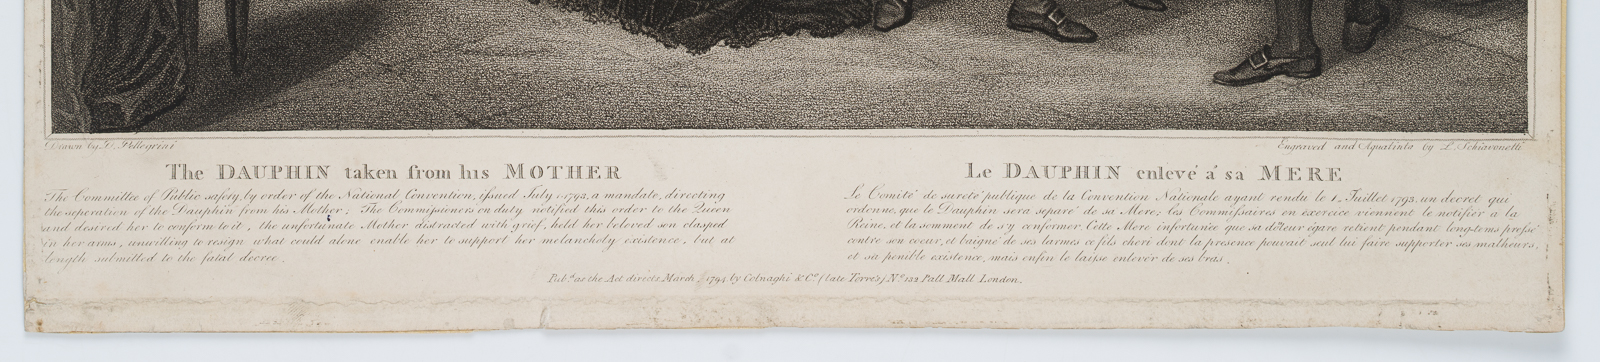 Drawn by D. Pellegrini
Engraved and Aquatinta by L. Schiavonetti
The DAUPHIN taken from his MOTHER
The Committee of Public safety, by order of the National Convention, issued July 1, 1793, a mandate, directing
the seperation of the Dauphin from his Mother; The Commissioners on duty notified this order to the Queen
and desired her to conform to it, the unfortunate Mother distracted with grief, held her beloved son clasped
in her arms, unwilling to resign what could alone enable her to support her melancholy existence, but at
length submitted to the fatal decree.
Le DAUPHIN enlevé á sa MERE
Le Comité de sureté publique de la Convention Nationale ayant rendu le 1, Juillet 1793, un decret qui
ordonne, que le Dauphin sera separé de sa Mere; les Commissaires en exercice viennent le notifier à la
Reine, et la somment de s'y conformer. Cette Mere infortunée que sa douleur égare retient pendant long-tems pressé
contre son coeur, et baigné de ses larmes ce fils cheri dont la presence pouvait seul lui faire supporter ses malheurs,
et sa penible existence, mais enfin le laisse enlevér de ses bras.
Pub.d as the Act directs March 1794 by Colnaghi & Co. (late Torre's) No. 132 Pall Mall London.